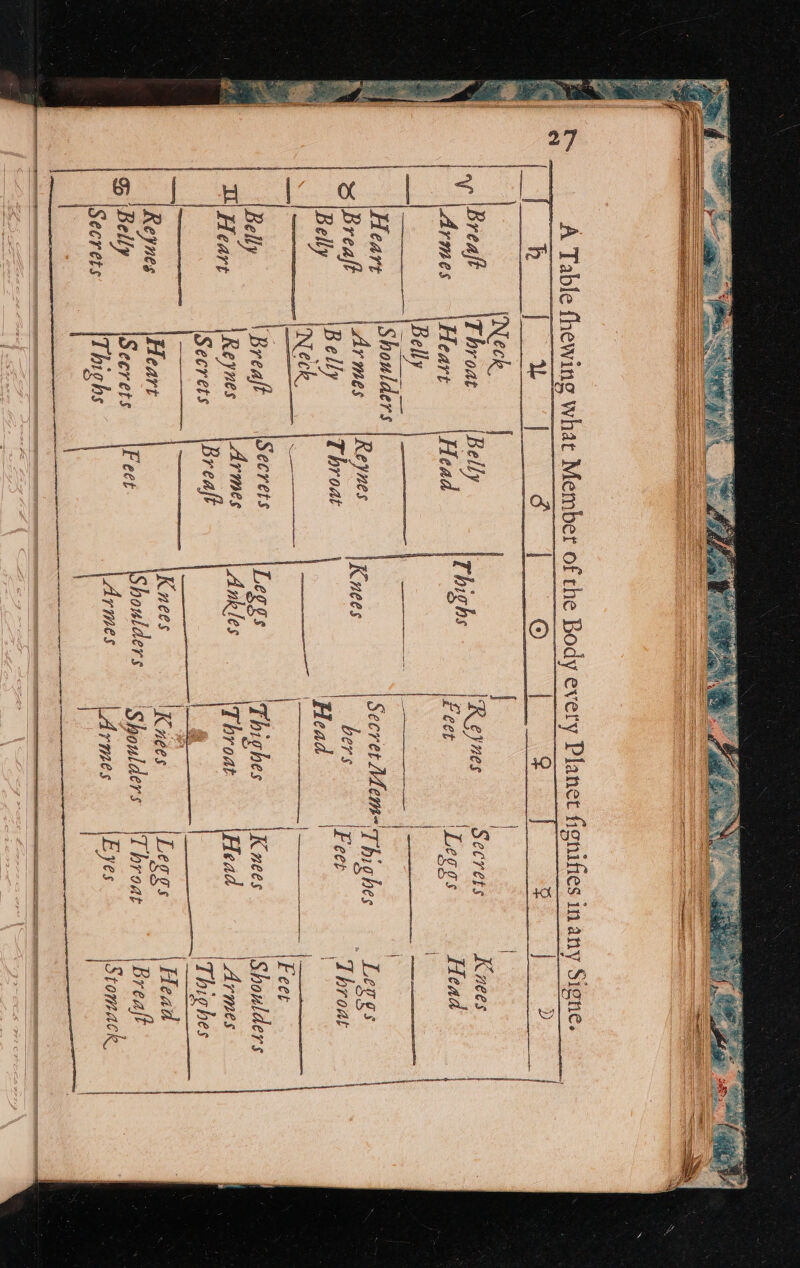 27
A Table ſhewing what Member of the Body every Planet ſignifies in any Signe.
♄ ♃ ♂ ☉ ♀ ☿ ☽
Neck
♈ Breaſt Throat Belly Thighs Reynes Secrets Knees
Armes Heart Head Feet Leggs Head
Belly
Heart Shoulders Secret Mem- Thighes Leggs
♉ Breaſt Armes Reynes Knees bers Feet Throat
Belly Belly Throat Head
Neck
Feet
Belly Breaſt Secrets Leggs Thighes Knees Shoulders
♊ Heart Reynes Armes Ankles Throat Head Armes
Secrets Breaſt Thighes
Reynes Heart Knees Knees Leggs Head
♋ Belly Secrets Feet Shoulders Shoulders Throat Breaſt
Secrets Thighs Armes Armes Eyes Stomack